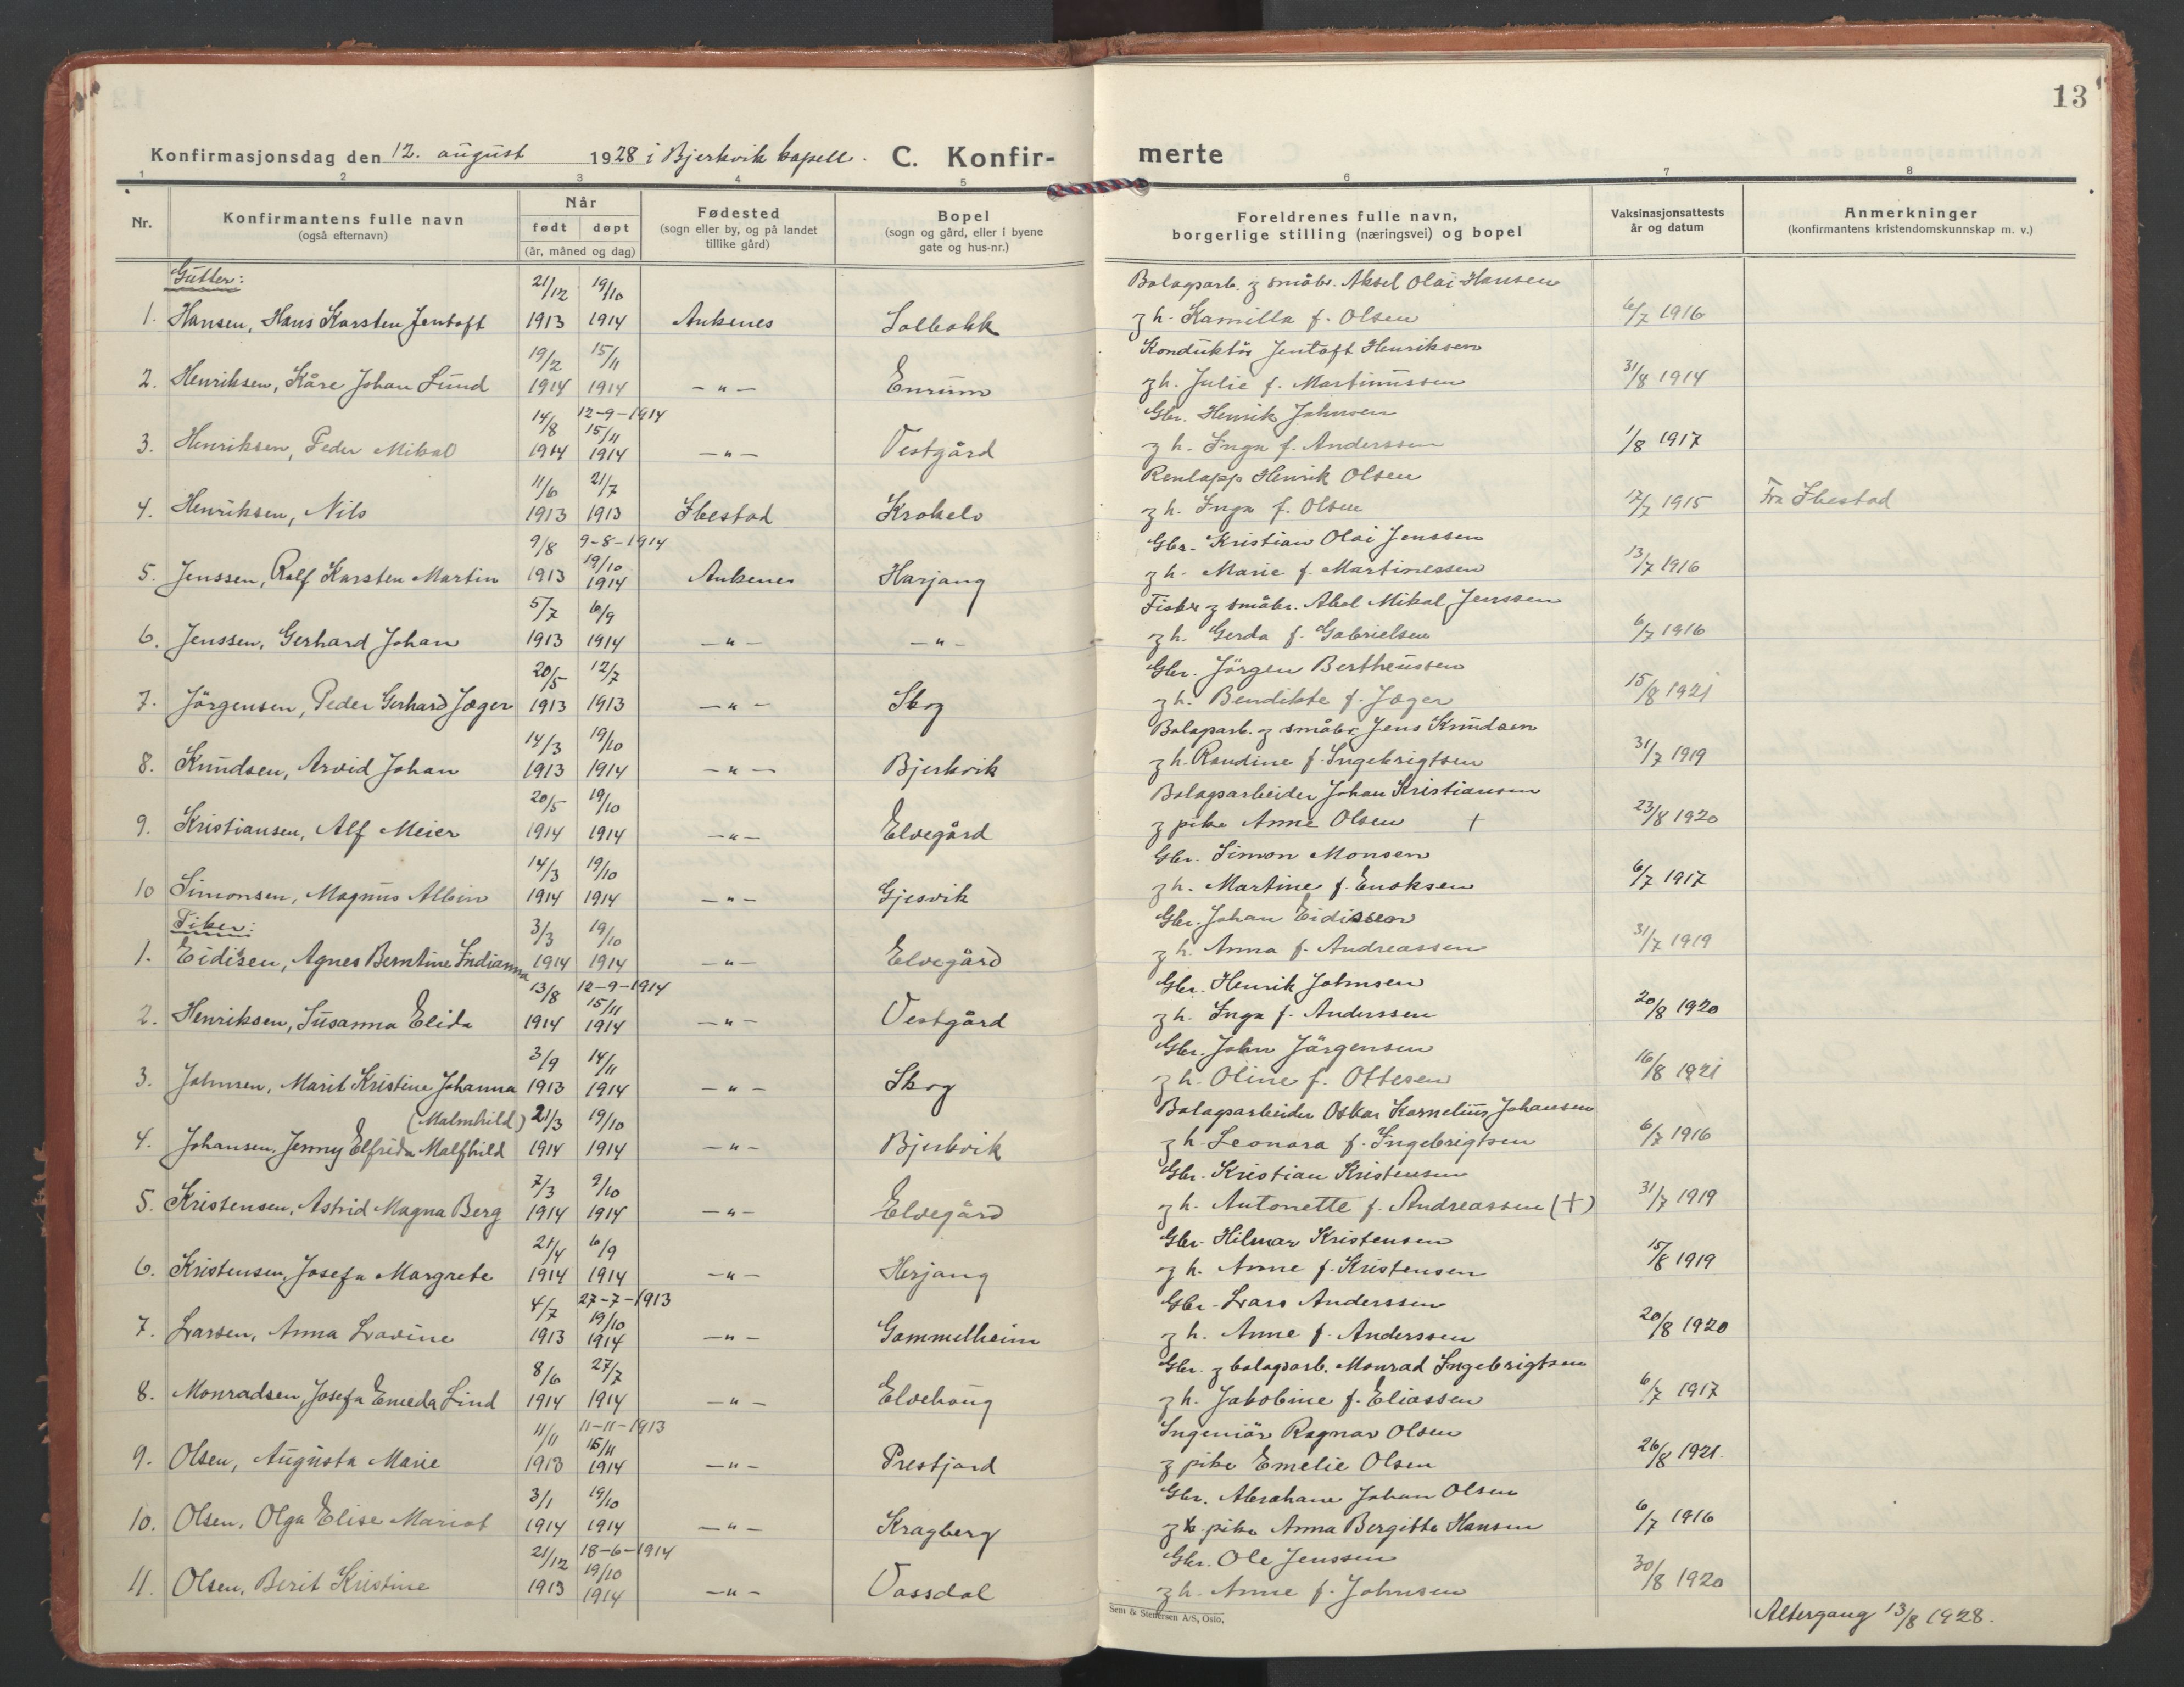 13
Konfirmasjonsdag den 12. august 1928 i Bjerkvik kapell. C. Konfir- merte
1 2 3 4 5 6 7 8
Nr. Konfirmantens fulle navn (også efternavn) Når født døpt (år, måned og dag) Fødested (sogn eller by, og på landet tillike gård) Bopel (sogn og gård, eller i byene gate og hus-nr.) Foreldrenes fulle navn, borgerlige stilling (næringsvei) og bopel Vaksinasjonsattests år og datum Anmerkninger (konfirmantens kristendomskunnskap m. v.)
Gutter: 21/12 19/10 Bolagsarb. g småbr. Aksel Olai Hansen
1. Hansen, Hans Karsten Jentoft 1913 1914 Ankenes Solbakk g h. Kamilla f. Olsen 6/7 1916
19/2 15/11 Konduktör Jentoft Henriksen
2. Henriksen, Kåre Johan Lund 1914 1914 -"- Enrum g h. Julie f. Martinussen 31/8 1914
14/8 12-9-1914 15/11 Gbr. Henrik Johnsen
3. Henriksen, Peder Mikal 1914 1914 -"- Vestgård g h. Inga f. Anderssen 1/8 1917
11/6 21/7 Renlapp Henrik Olsen
4. Henriksen, Nils 1913 1913 Ibestad Krokelv g h. Inga f. Olsen 17/7 1915 Fra Ibestad
9/8 9-8-1914 19/10 Gbr. Kristian Olai Jenssen
5. Jenssen, Rolf Karsten Martin 1913 1914 Ankenes Harjang g h. Marie f. Martinessen 13/7 1916
5/7 6/9 Fisker g småbr. Abel Mikal Jenssen
6. Jenssen, Gerhard Johan 1913 1914 -"- -"- g h. Gerda f. Gabrielsen 6/7 1916
20/5 12/7 Gbr. Jörgen Bertheussen
7. Jörgensen, Peder Gerhard Jæger 1913 1913 -"- Skog g h. Bendikte f. Jæger 15/8 1921
14/3 19/10 Bolagsarb. g småbr. Jens Knudsen
8. Knudsen, Arvid Johan 1913 1914 -"- Bjerkvik g h. Randine f. Ingebrigtsen 31/7 1919
20/5 19/10 Bolagsarbeider Johan Kristiansen
9. Kristiansen, Alf Meier 1914 1914 -"- Elvegård g pike Anne Olsen + 23/8 1920
14/3 19/10 Gbr. Simon Monsen
10 Simonsen, Magnus Albin 1914 1914 -"- Gjesvik g h. Martine f. Enoksen 6/7 1917
Piker: 3/3 19/10 Gbr. Johan Eidissen
1. Eidisen, Agnes Berntine Indianna 1914 1914 -"- Elvegård g h. Anna f. Andreassen 31/7 1919
13/8 12-9-1914 15/11 Gbr. Henrik Johnsen
2. Henriksen, Susanna Elida 1914 1914 -"- Vestgård g h. Inga f. Anderssen 20/8 1920
3/9 14/11 Gbr. John Jörgensen
3. Johnsen, Marit Kristine Johanna 1913 1914 -"- Skog g h. Oline f. Ottesen 16/8 1921
(Malmhild) 21/3 19/10 Bolagsarbeider Oskar Kornelius Johansen
4. Johansen, Jenny Elfrida Malfhild 1914 1914 -"- Bjerkvik g h. Leonora f. Ingebrigtsen 6/7 1916
7/3 9/10 Gbr. Kristian Kristensen
5. Kristensen, Astrid Magna Berg 1914 1914 -"- Elvegård g h. Antonette f. Andreassen (+) 31/7 1919
21/4 6/9 Gbr. Hilmar Kristensen
6. Kristensen, Josefa Margrete 1914 1914 -"- Herjang g h. Anne f. Kristensen 15/8 1919
4/7 27-7-1913 19/10 Gbr. Lars Anderssen
7. Larsen, Anna Lovine 1913 1914 -"- Gammelheim g h. Anne f. Anderssen 20/8 1920
8/6 27/7 Gbr. g bolagsarb. Monrad Ingebrigtsen
8. Monradsen, Josefa Emeda Lind 1914 1914 -"- Elvehaug g h. Jakobine f. Eliassen 6/7 1917
11/11 11-11-1913 15/11 Ingeniör Ragnar Olsen
9. Olsen, Augusta Marie 1913 1914 -"- Prestjord g pike Emelie Olsen 26/8 1921.
3/1 19/10 Gbr. Abrahane Johan Olsen
10. Olsen, Olga Elise Mariot 1914 1914 -"- Kragberg g pike Anna Bergitte Hansen 6/7 1916
21/12 18-6-1914 19/10 Gbr. Ole Jenssen
11. Olsen, Berit Kristine 1913 1914 -"- Vassdal g h. Anne f. Johnsen 30/8 1920
Sem & Stenersen A/S, Oslo.
Altergang 13/8 1928.